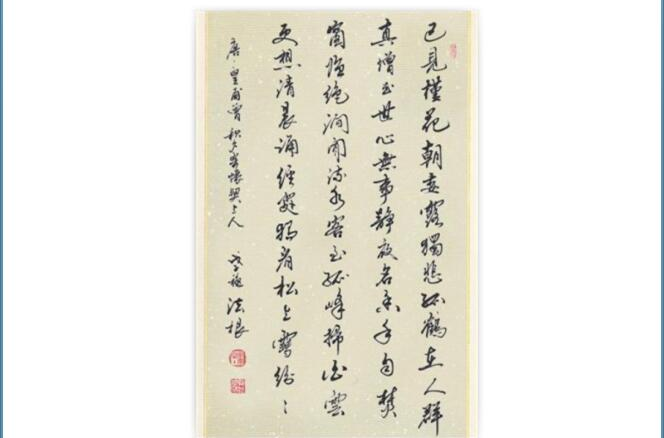 已見槿花朝委露獨悲孤鶴在人群
真僧出世心無事靜夜名香手自焚
窗臨絕澗聞流水客至孤峰掃白雲
更想清晨誦經處獨看松上雪紛〻
唐·皇甫曾 秋夕寄懷契上人 法根